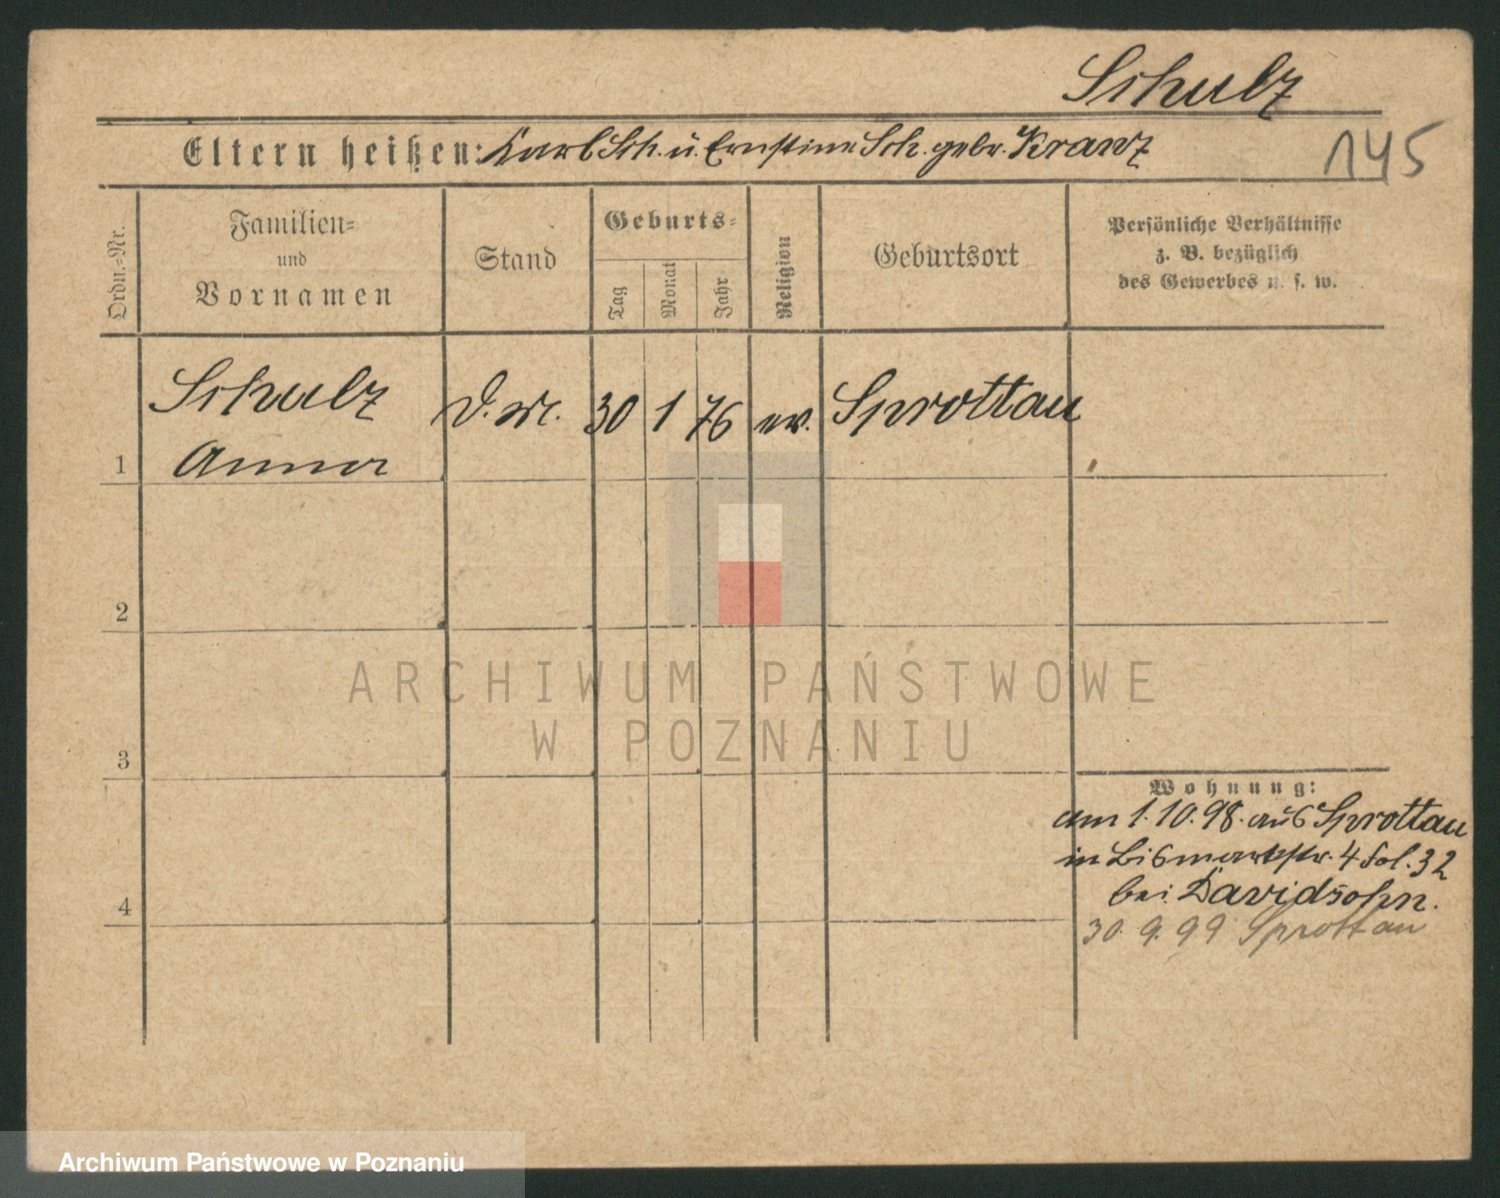 Schulz
Eltern heißen: Karl Sch. u. Ernstine Sch. gebr. Kranz
145
Ordn.-Nr.
Familien-
und
Vornamen
Stand
Geburts-
Tag
Monat
Jahr
Religion
Geburtsort
Persönliche Verhältnisse
z. B. bezüglich
des Gewerbes u. s. w.
Schulz
D. M. 30 1 76 ev. Sprottau
1 Anna
2
ARCHIWUM PAŃSTWOWE
W POZNANIU
3
Wohnung:
am 1.10.98. aus Sprottau
in Bismarkstr. 4 fol. 32
bei Davidsohn.
4
30. 9. 99 Sprottau
Archiwum Państwowe w Poznaniu